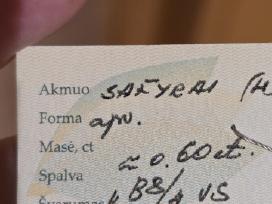 Akmuo SAFYRAI (H
Forma apv.
Masė, ct ≈ 0.60ct.
Spalva
Švarumas B8/1 VS